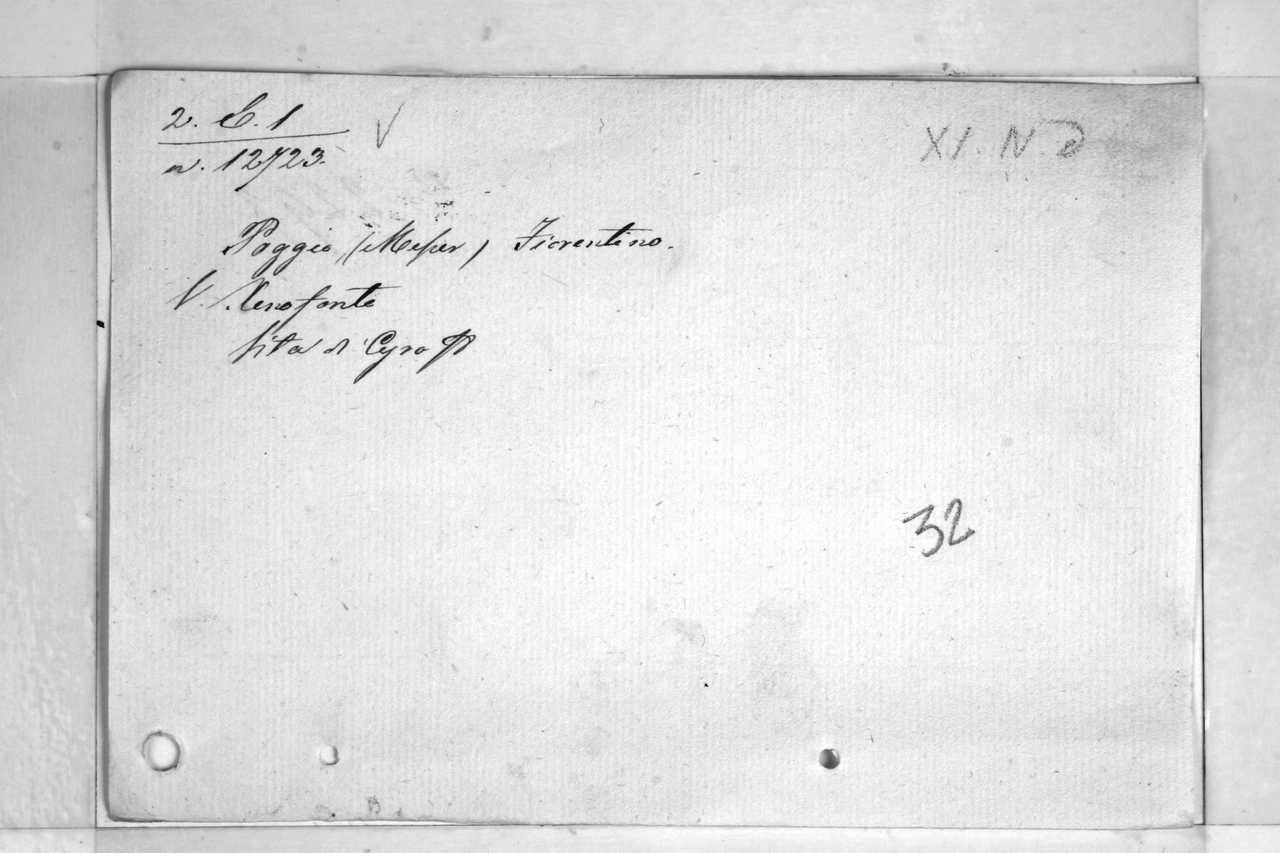 2. E. 1
n. 12723.
XI. N. d
Poggio (Messer) Fiorentino.
V. Xenofonte
Vita di Cyro
32